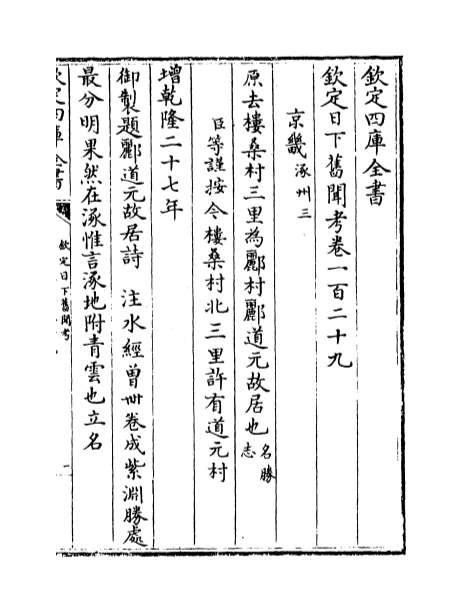 欽定四庫全書
欽定日下舊聞考卷一百二十九
京畿涿州三
原去樓桑村三里為酈村酈道元故居也名勝志
臣等謹按今樓桑村北三里許有道元村
增乾隆二十七年
御製題酈道元故居詩 注水經曽卌卷成紫淵勝處
最分明果然在涿惟言涿地附青雲也立名
欽定四庫全書
欽定日下舊聞考
一